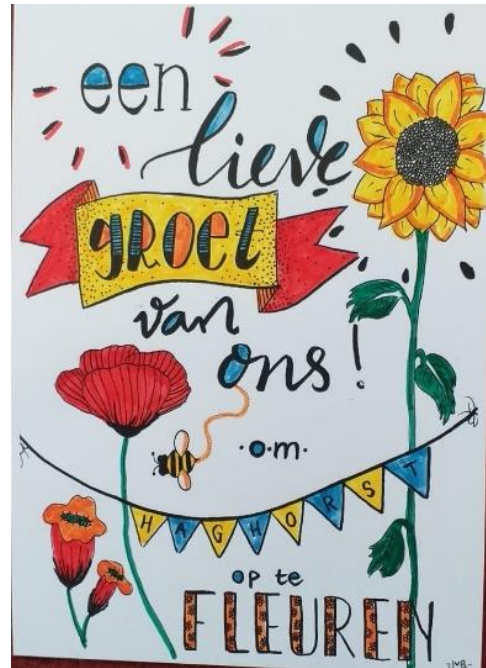 een
lieve
groet
van
ons!
.o.m.
HAGHORST
op te
FLEUREN